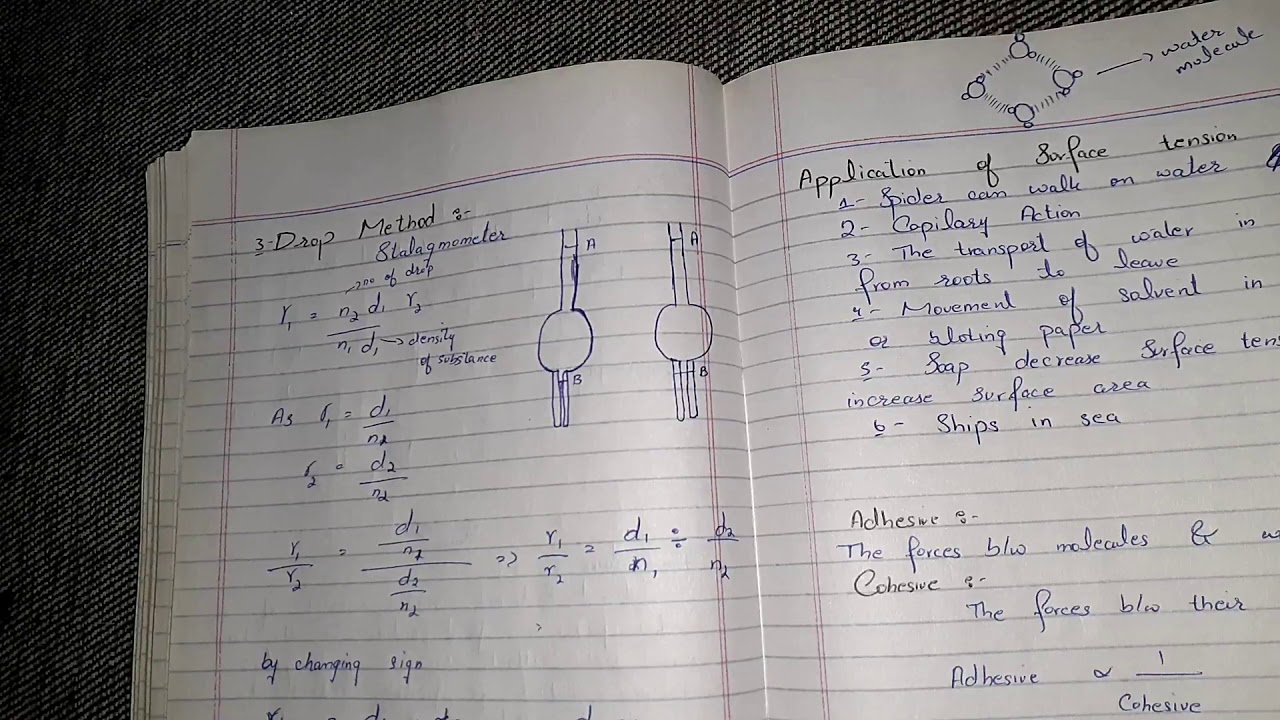 3-Drop Method :-
Stalagmometer
no of drop
γ₁ = n₂ d₁ γ₂
n₁ d₁ → density
of substance
A
B
A
B
As γ₁ = d₁
n₂
γ₂ = d₂
n₂
γ₁ = d₁/n₂ => γ₁ = d₁ ÷ d₂
γ₂ d₂/n₂ γ₂ n₁ n₂
by changing sign
→ water
molecule
Application of Surface tension
1- Spider can walk on water
2- Capilary Action
3- The transport of water in
from roots to leave
4- Movement of solvent in
or bloting paper
5- Soap decrease Surface tens
increase surface area
6- Ships in sea
Adhesive :-
The forces b/w molecules &
Cohesive :-
The forces b/w their
Adhesive ∝ 1
Cohesive